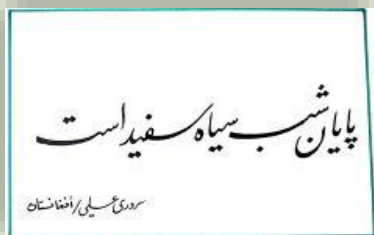 پایان شب سیاه سفید است
سروری علی/افغانستان